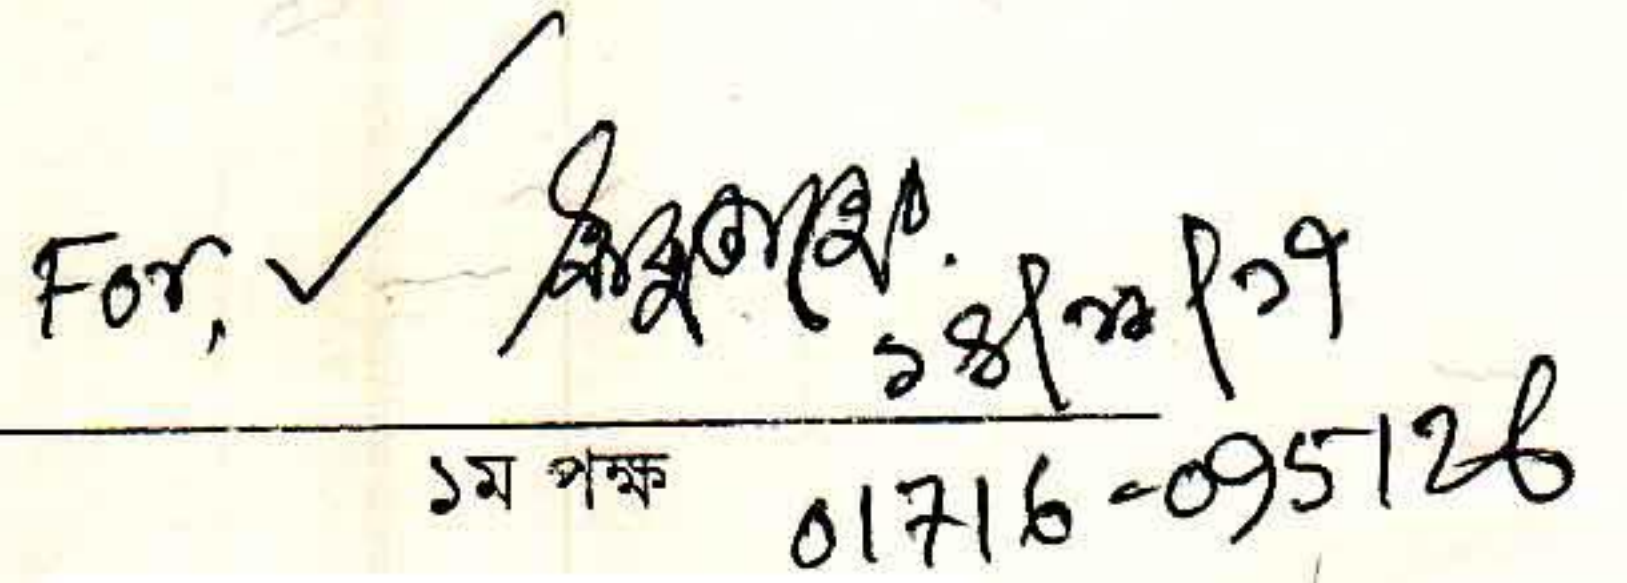 For,
১৪/০৯/১৭
১ম পক্ষ
01716-095126